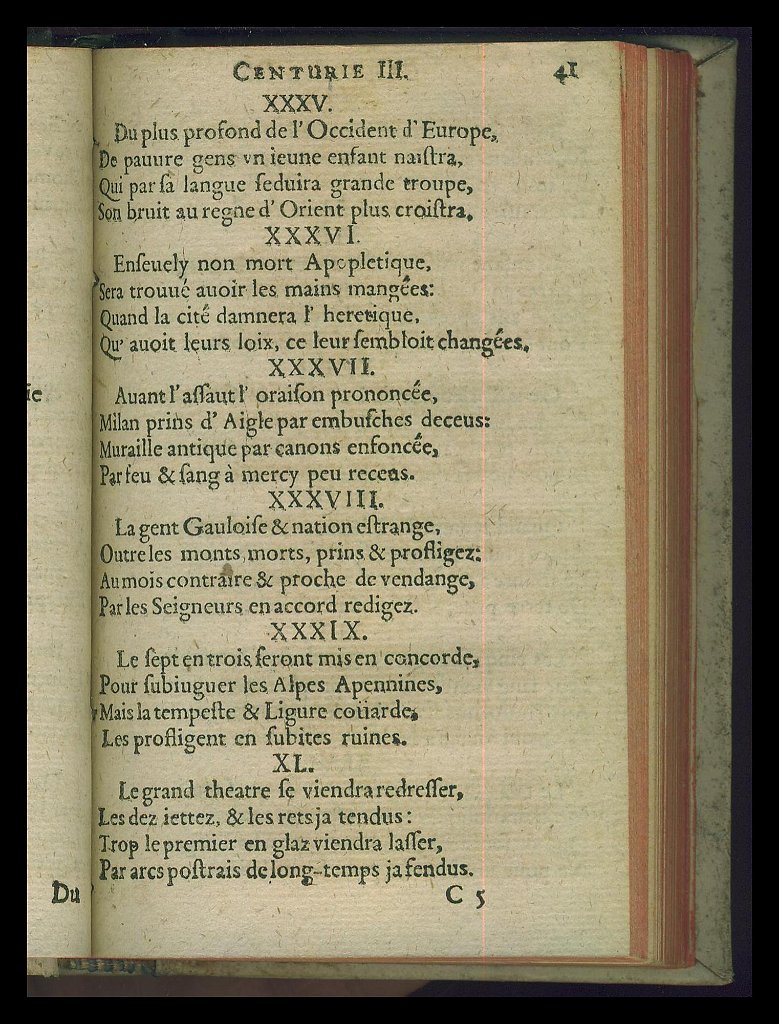 ie
Du
CENTURIE III. 41
XXXV.
Du plus profond de l' Occident d' Europe,
De pauure gens vn ieune enfant naiſtra,
Qui par ſa langue ſeduira grande troupe,
Son bruit au regne d' Orient plus croiſtra.
XXXVI.
Enſeuely non mort Apopletique,
Sera trouué auoir les mains mangées:
Quand la cité damnera l' heretique,
Qu' auoit leurs loix, ce leur ſembloit changées.
XXXVII.
Auant l' aſſaut l' oraiſon prononcée,
Milan prins d' Aigle par embuſches deceus:
Muraille antique par canons enfoncée,
Par feu & ſang à mercy peu receus.
XXXVIII.
La gent Gauloiſe & nation eſtrange,
Outre les monts, morts, prins & profligez:
Au mois contraire & proche de vendange,
Par les Seigneurs en accord redigez.
XXXIX.
Le ſept en trois ſeront mis en concorde,
Pour ſubiuguer les Alpes Apennines,
Mais la tempeſte & Ligure coüarde,
Les profligent en ſubites ruines.
XL.
Le grand theatre ſe viendra redreſſer,
Les dez iettez, & les rets ja tendus:
Trop le premier en glaz viendra laſſer,
Par arcs poſtrais de long-temps ja fendus.
C 5